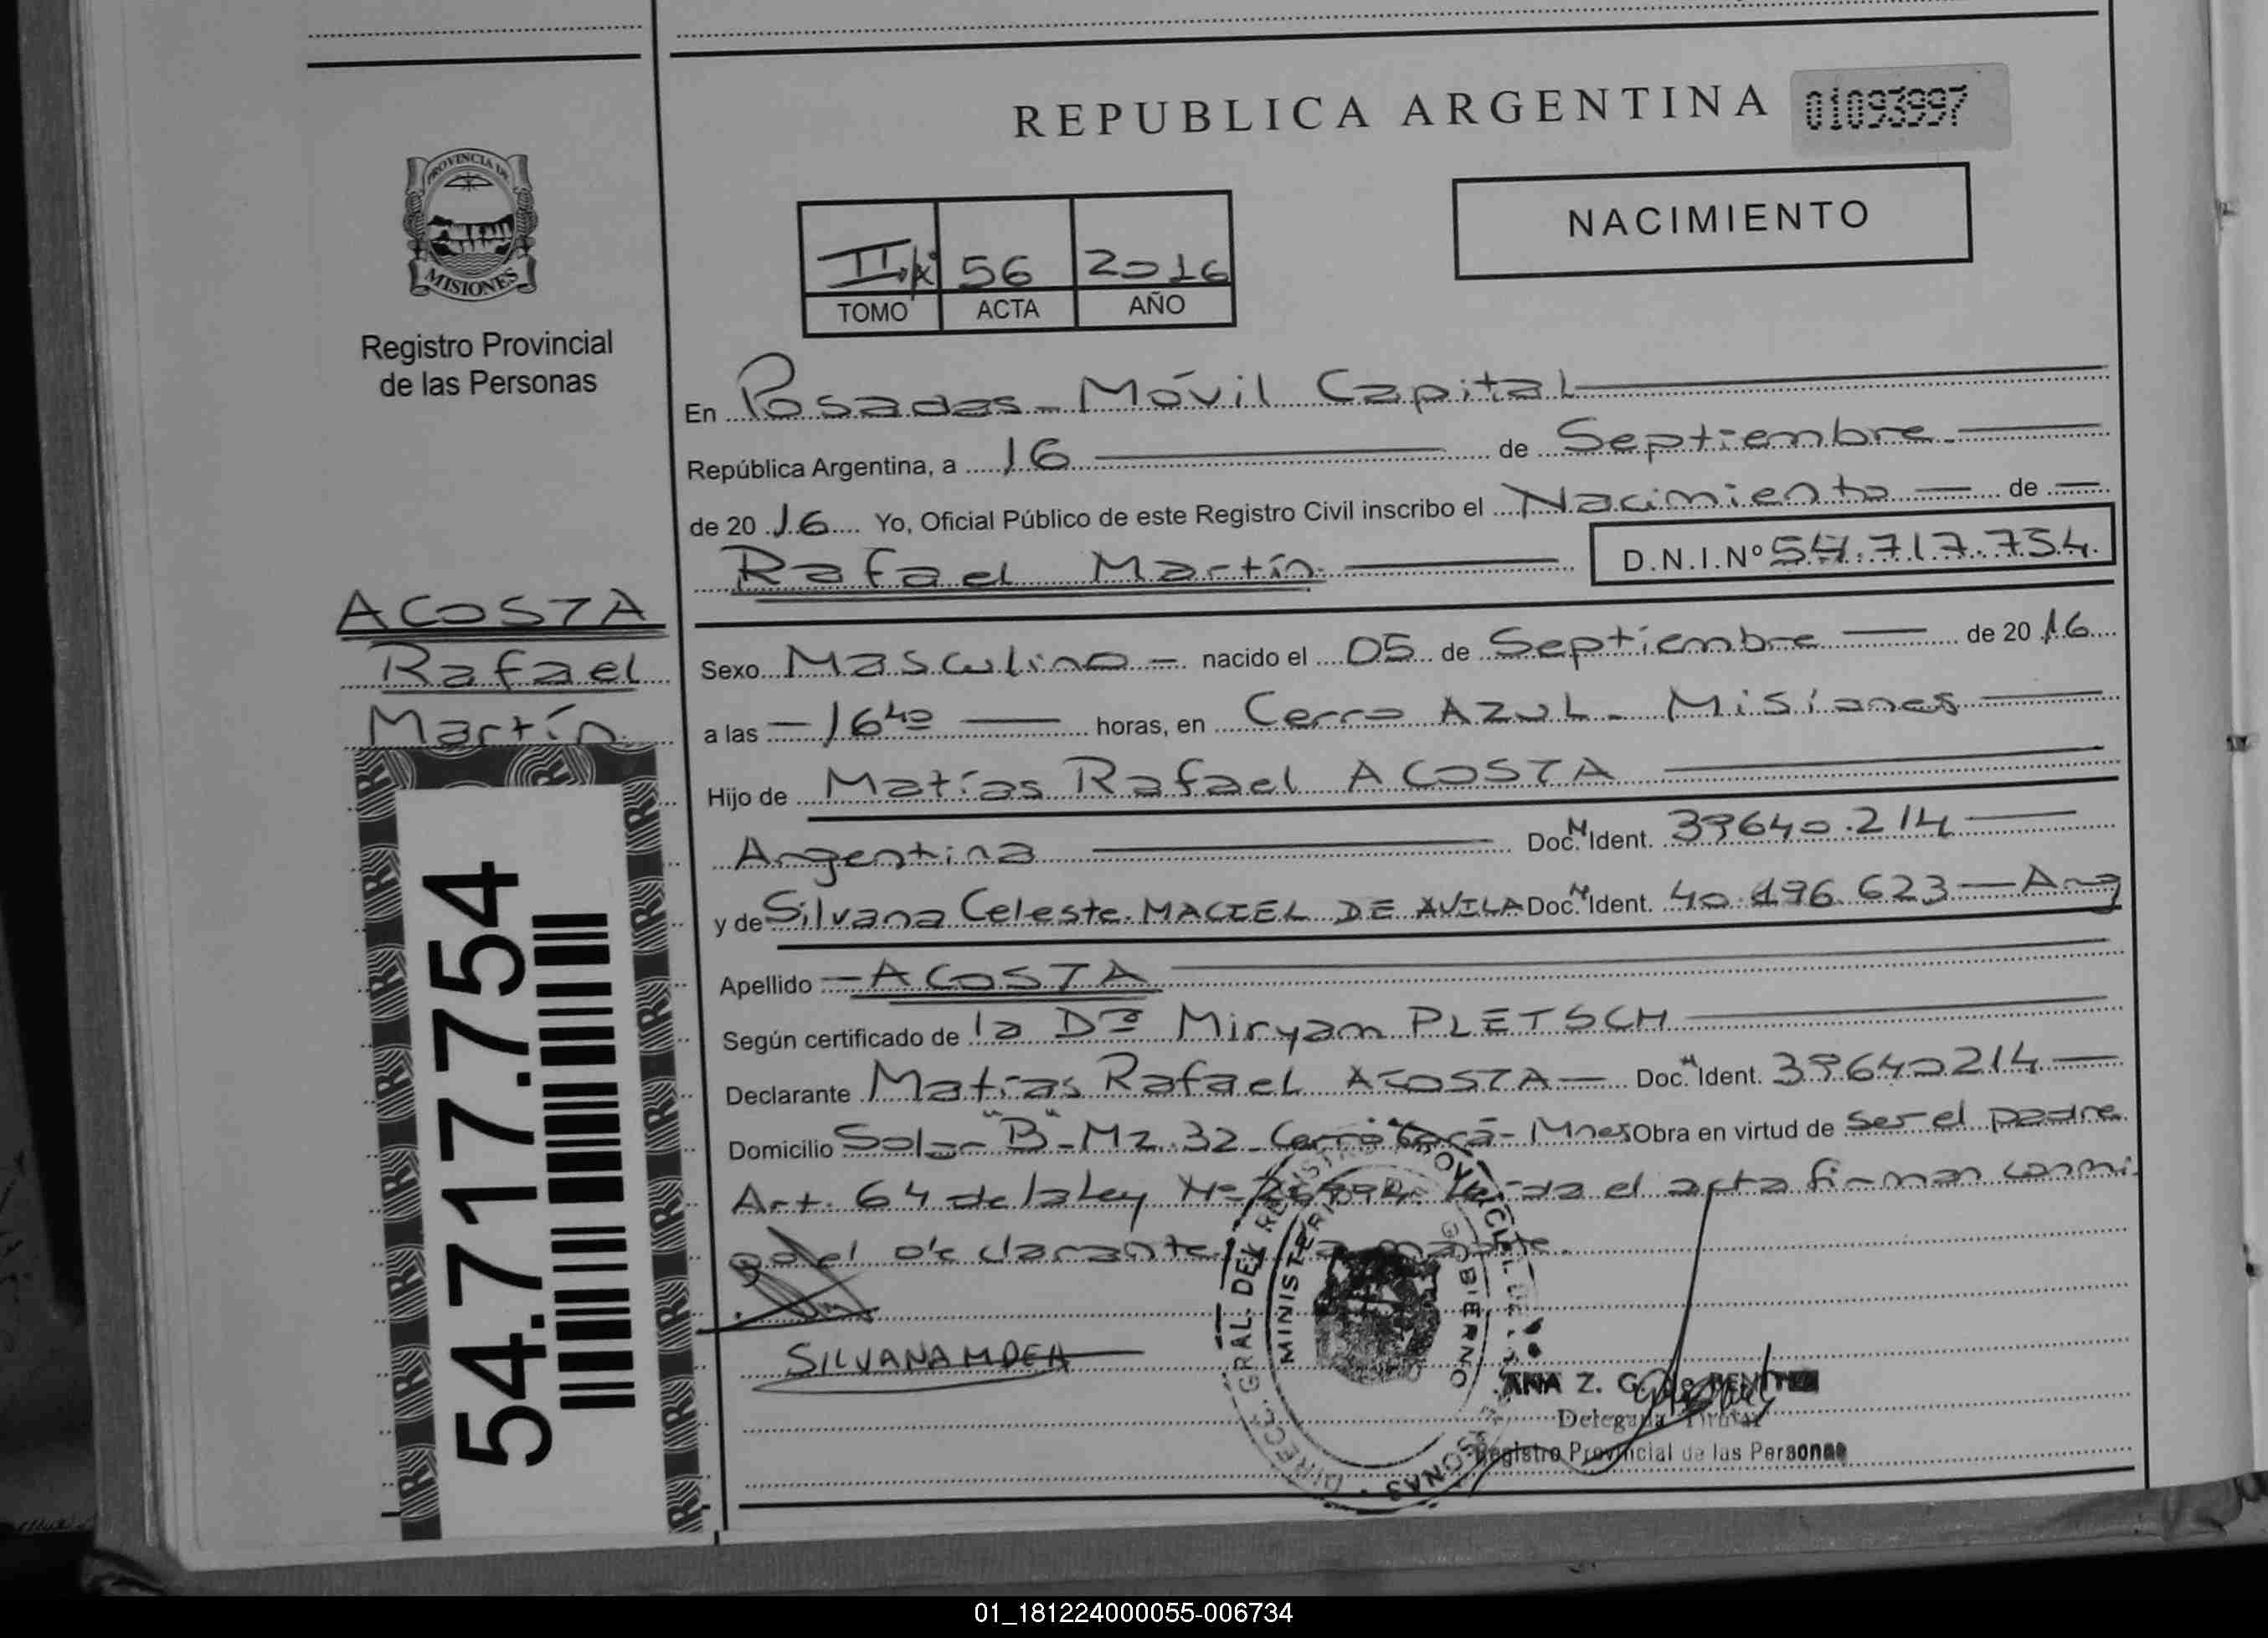 REPUBLICA ARGENTINA 01093997
PROVINCIA DE
MISIONES
Registro Provincial
de las Personas
NACIMIENTO
II 56 2016
TOMO ACTA AÑO
En Posadas - Móvil Capital
República Argentina, a 16 de Septiembre
de 20 16 Yo, Oficial Público de este Registro Civil inscribo el Nacimiento de
Rafael Martín D.N.I.Nº 54.717.754
ACOSTA
Rafael
Martín
54.717.754
Sexo Masculino nacido el 05 de Septiembre de 20 16
a las 16 40 horas, en Cerro AZUL - Misiones
Hijo de Matías Rafael ACOSTA
Argentina Doc. N Ident. 39640.214
y de Silvana Celeste MACIEL DE AVILA Doc. N Ident. 40.196.623 - Arg
Apellido ACOSTA
Según certificado de la Drª Miryam PLETSCH
Declarante Matías Rafael ACOSTA Doc. N Ident. 39640214
Domicilio Solar "B" - Mz. 32 - Cerro Corá - Mnes Obra en virtud de ser el padre
Art. 64 de la Ley Nº Leída el acta firman conmi
go el declarante la madre.
SILVANA MDEA
DIREC. GRAL. DEL REGISTRO PROVINCIAL DE LAS PERSONAS
MINISTERIO DE GOBIERNO
ANA Z. G. de BENITEZ
Delegada Titular
Registro Provincial de las Personas
01_181224000055-006734